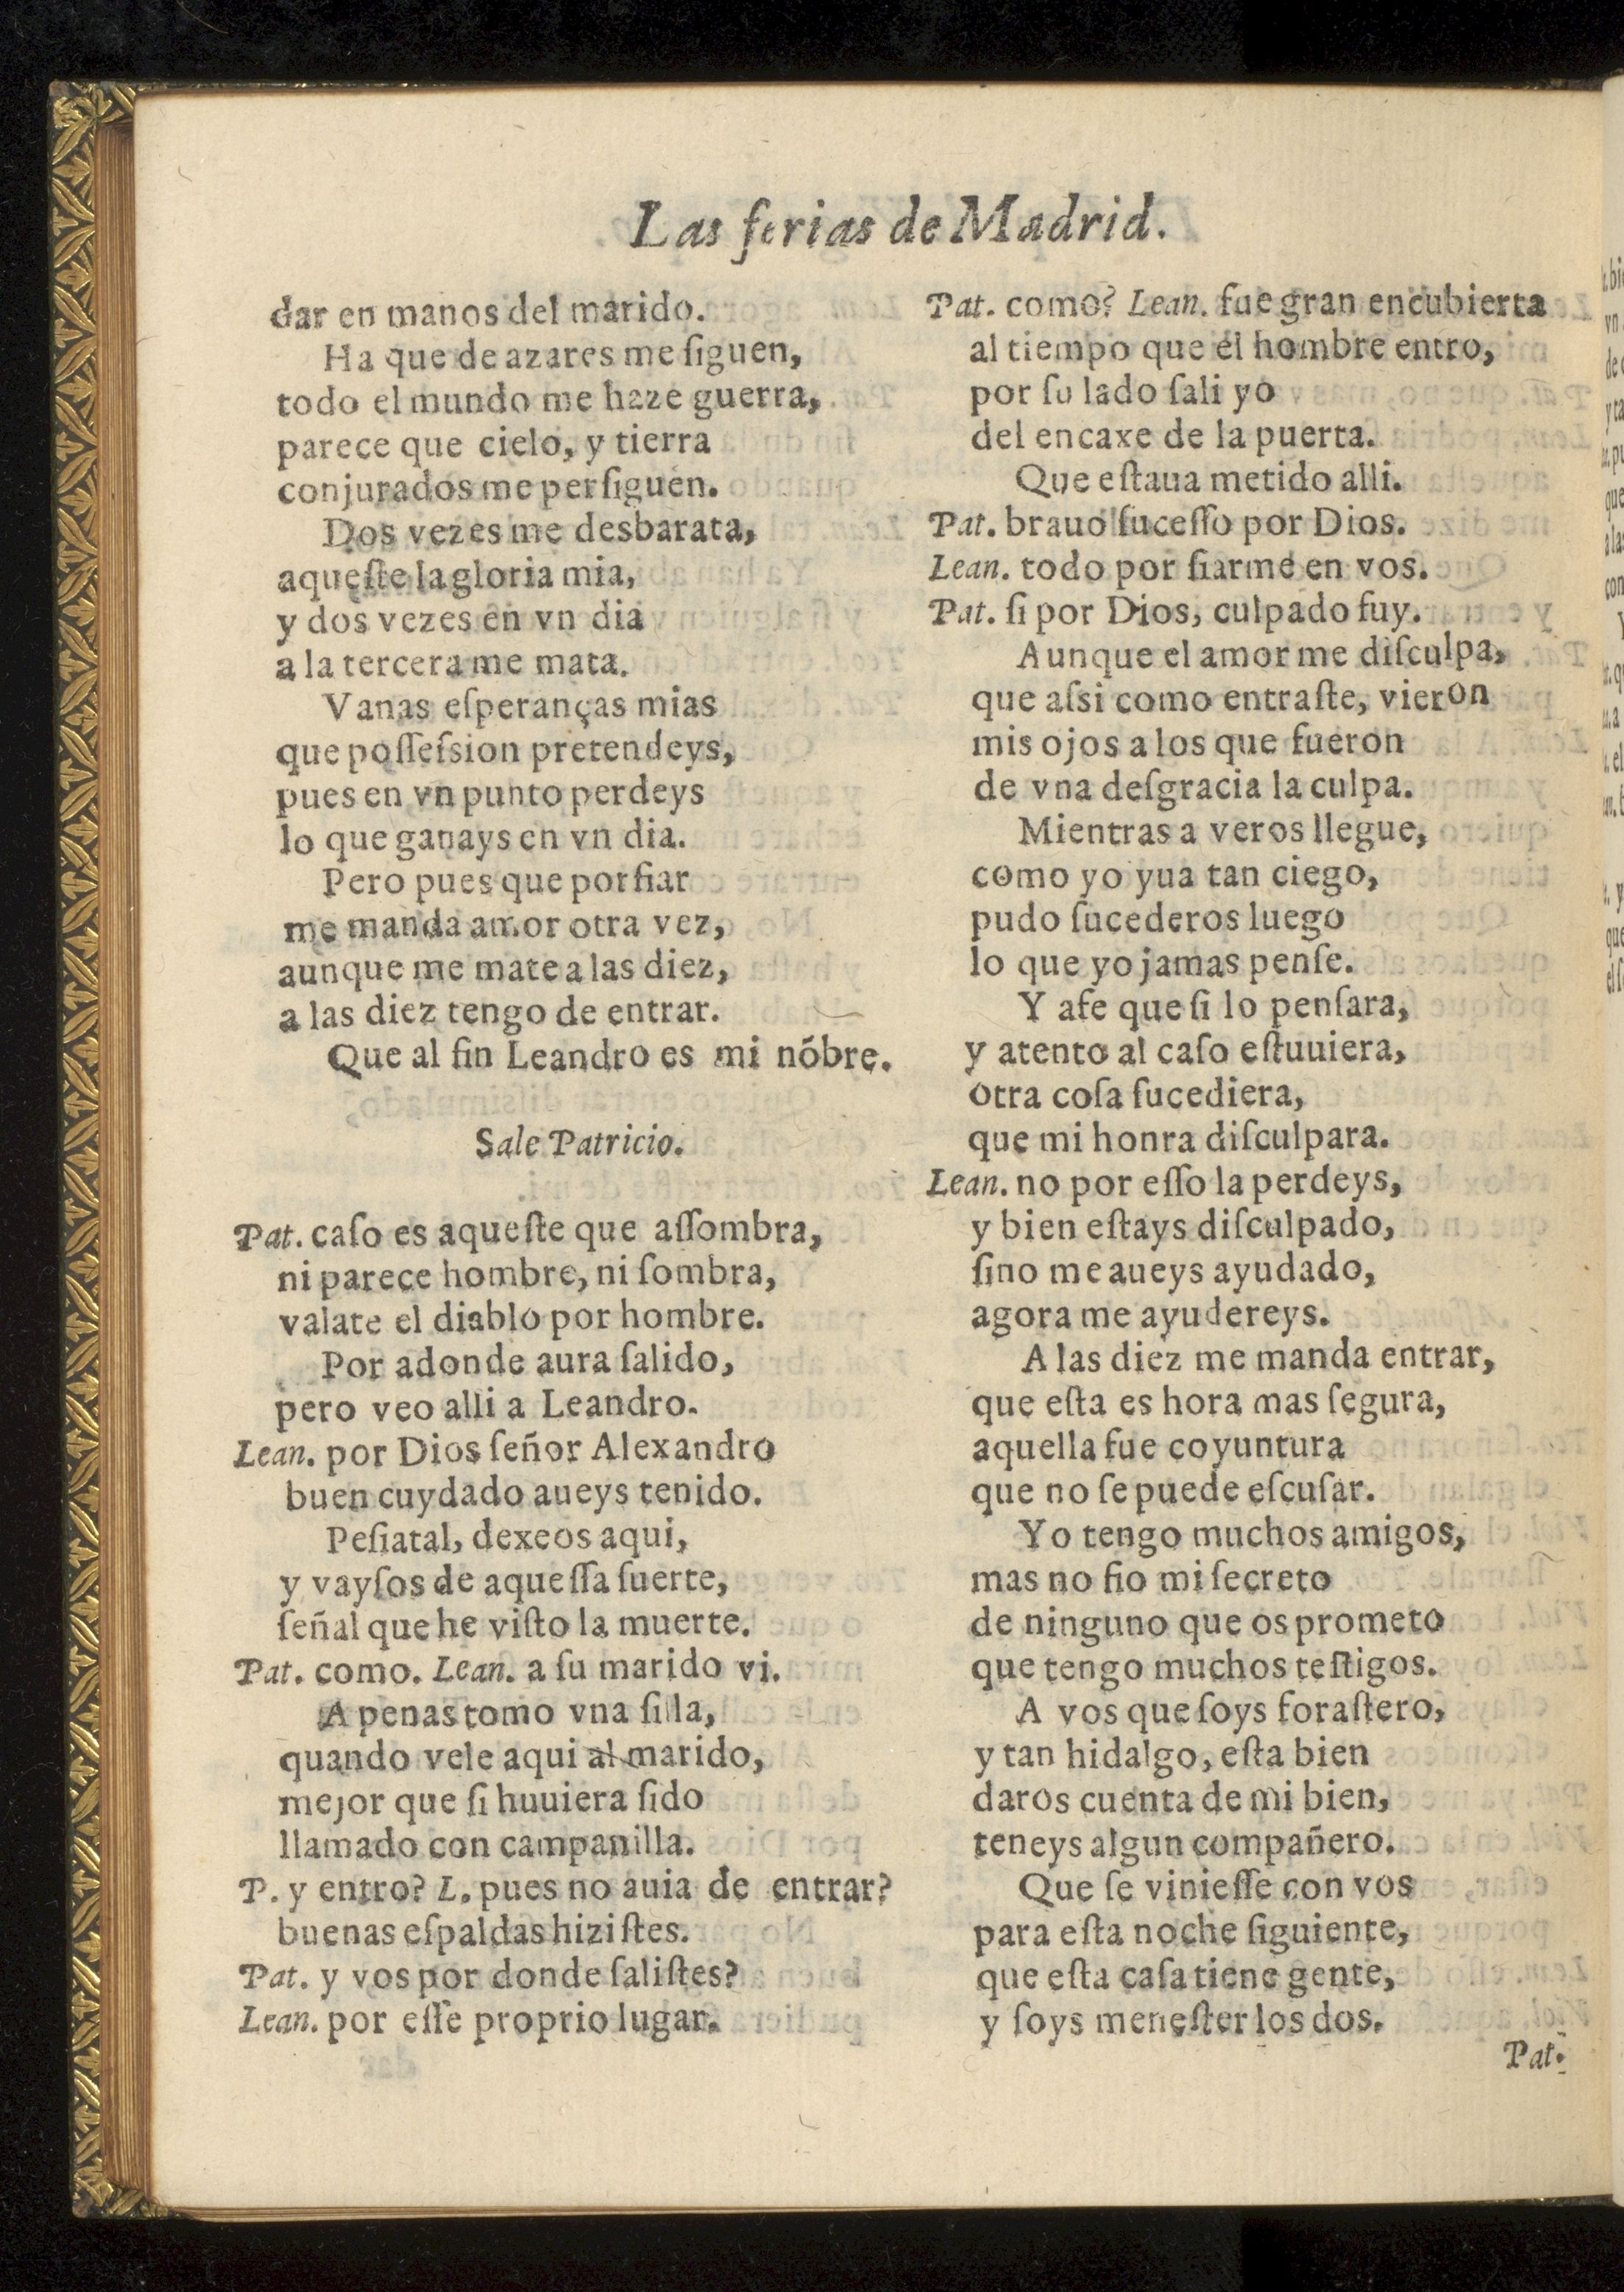 Las ferias de Madrid.
dar en manos del marido.
Ha que de azares me ſiguen,
todo el mundo me haze guerra,
parece que cielo, y tierra
conjurados me perſiguen.
Dos vezes me desbarata,
aqueſte la gloria mia,
y dos vezes en vn dia
a la tercera me mata.
Vanas eſperanças mias
que poſſeſsion pretendeys,
pues en vn punto perdeys
lo que ganays en vn dia.
Pero pues que porfiar
me manda amor otra vez,
aunque me mate a las diez,
a las diez tengo de entrar.
Que al fin Leandro es mi nóbre.
Sale Patricio.
Pat. caſo es aqueſte que aſſombra,
ni parece hombre, ni ſombra,
valate el diablo por hombre.
Por adonde aura ſalido,
pero veo alli a Leandro.
Lean. por Dios ſeñor Alexandro
buen cuydado aueys tenido.
Peſiatal, dexeos aqui,
y vayſos de aqueſſa ſuerte,
ſeñal que he viſto la muerte.
Pat. como. Lean. a ſu marido vi.
A penas tomo vna ſilla,
quando vele aqui al marido,
mejor que ſi huuiera ſido
llamado con campanilla.
P. y entro? L. pues no auia de entrar?
buenas eſpaldas hiziſtes.
Pat. y vos por donde ſaliſtes?
Lean. por eſſe proprio lugar.
Pat. como? Lean. fue gran encubierta
al tiempo que él hombre entro,
por ſu lado ſali yo
del encaxe de la puerta.
Que eſtaua metido alli.
Pat. brauo ſuceſſo por Dios.
Lean. todo por fiarme en vos.
Pat. ſi por Dios, culpado fuy.
Aunque el amor me diſculpa,
que aſsi como entraſte, vieron
mis ojos a los que fueron
de vna deſgracia la culpa.
Mientras a veros llegue,
como yo yua tan ciego,
pudo ſucederos luego
lo que yo jamas penſe.
Y afe que ſi lo penſara,
y atento al caſo eſtuuiera,
otra coſa ſucediera,
que mi honra diſculpara.
Lean. no por eſſo la perdeys,
y bien eſtays diſculpado,
ſino me aueys ayudado,
agora me ayudereys.
A las diez me manda entrar,
que eſta es hora mas ſegura,
aquella fue coyuntura
que no ſe puede eſcuſar.
Yo tengo muchos amigos,
mas no fio mi ſecreto
de ninguno que os prometo
que tengo muchos teſtigos.
A vos que ſoys foraſtero,
y tan hidalgo, eſta bien
daros cuenta de mi bien,
teneys algun compañero.
Que ſe vinieſſe con vos
para eſta noche ſiguiente,
que eſta caſa tiene gente,
y ſoys meneſter los dos.
Pat.